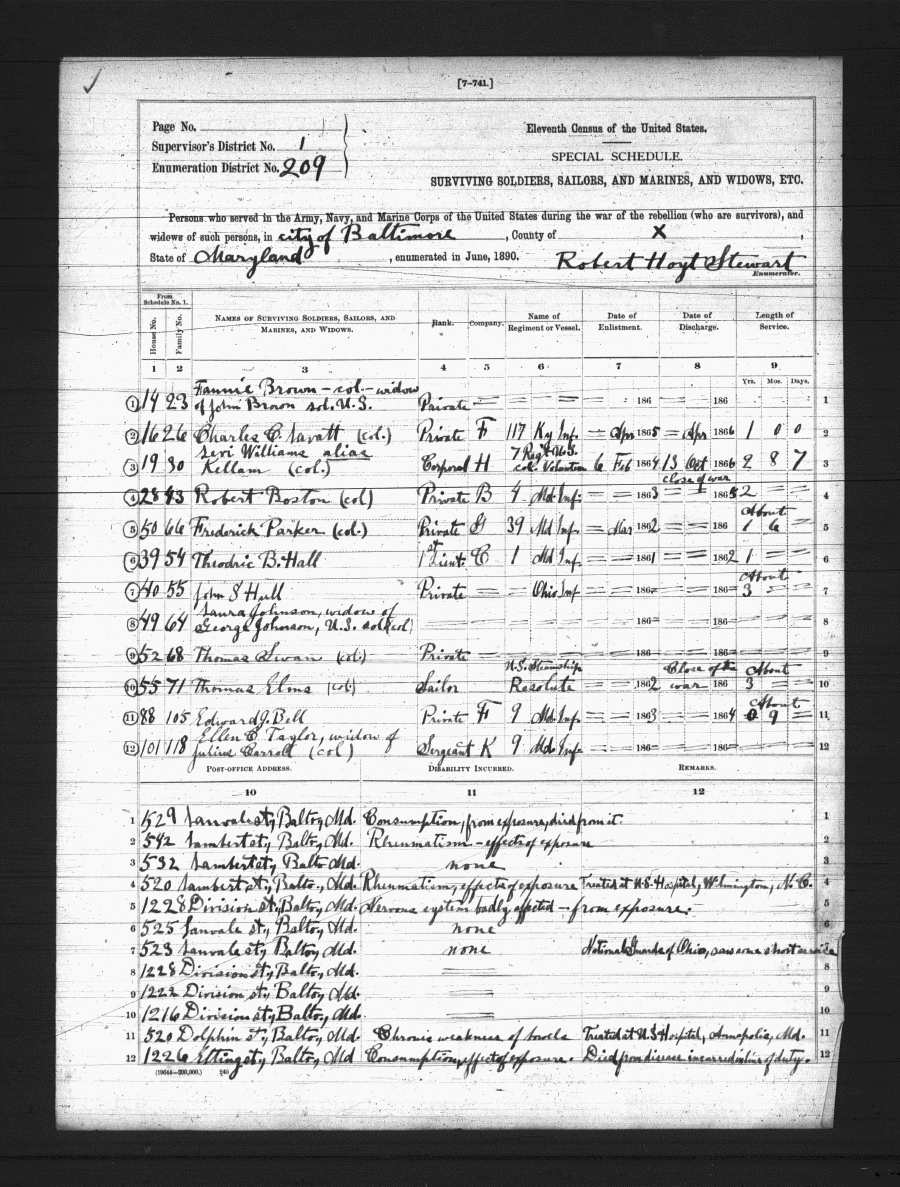 [7-741.]
Page No. 1
Supervisor's District No. 1
Enumeration District No. 209
Eleventh Census of the United States.
SPECIAL SCHEDULE.
SURVIVING SOLDIERS, SAILORS, AND MARINES, AND WIDOWS, ETC.
Persons who served in the Army, Navy, and Marine Corps of the United States during the war of the rebellion (who are survivors), and
widows of such persons, in city of Baltimore, County of X,
State of Maryland, enumerated in June, 1890. Robert Hoyt Stewart
Enumerator.
From Schedule No. 1.
House No. Family No. NAMES OF SURVIVING SOLDIERS, SAILORS, AND MARINES, AND WIDOWS. Rank. Company. Name of Regiment or Vessel. Date of Enlistment. Date of Discharge. Length of Service.
1 2 3 4 5 6 7 8 9
Yrs. Mos. Days.
Fannie Brown - col. - widow
1 14 23 of John Brown sol. U.S. Private = = = = = 186 = = 186 1
2 16 26 Charles C. (col.) Private F 117 Ky Inf. = Apr 1865 = Apr 1866 1 0 0 2
Levi Williams alias 7 Regt U.S.
3 19 30 Kellam (col.) Corporal H col. Volunteer 6 Feb 1864 13 Oct 1866 2 8 7 3
close of war
4 28 43 Robert Boston (col) Private B 4 Md Inf. = = 1863 = = 1865 2 = = 4
About
5 50 66 Frederick Parker (col.) Private G 39 Md Inf. = Mar 1862 = = 186 1 6 = 5
6 39 54 Theodric B. Hall 1st Lieut C 1 Md Inf. = = 1861 = = 1862 1 = = 6
About
7 40 55 John S Hull Private = = Ohio Inf = = 186 = = 186 3 = = 7
Laura Johnson, widow of
8 49 64 George Johnson, U.S. sol (col) = = = = = 186 = = 186 = = = 8
9 52 68 Thomas Swan (col.) Private = = = = = 186 = = 186 = = = 9
U.S. Steamship Close of the About
10 55 71 Thomas Elms (col) Sailor Resolute = = 1862 war 186 3 = = 10
About
11 88 105 Edward J. Bell Private F 9 Md. Inf. = = 1863 = = 1864 0 9 = 11
Ellen C Taylor, widow of
12 101 118 Julius Carroll (col) Sergeant K 9 Md. Inf. = = 186 = = 186 = = = 12
POST-OFFICE ADDRESS. DISABILITY INCURRED. REMARKS.
10 11 12
1 529 Lanvale st, Balto, Md. Consumption, from exposure, died from it. 1
2 542 Lambert st, Balto, Md. Rheumatism - effects of exposure 2
3 532 Lambert st, Balto Md. none 3
4 520 Lambert st, Balto., Md. Rheumatism, effects of exposure Treated at U.S. Hospital, Wilmington, N.C. 4
5 1228 Division st, Balto, Md. Nervous system badly affected - from exposure. 5
6 525 Lanvale st, Balto, Md. none 6
7 523 Lanvale st, Balto, Md. none National Guards of Ohio, saw some short service 7
8 1228 Division st, Balto, Md. = 8
9 1222 Division st, Balto, Md. = 9
10 1216 Division st, Balto, Md. = 10
11 520 Dolphin st, Balto, Md. Chronic weakness of bowels Treated at U.S. Hospital, Annapolis, Md. 11
12 1226 Etting st, Balto, Md Consumption, effect of exposure. Died from disease incurred in line of duty. 12
(19644-200,000.) 240